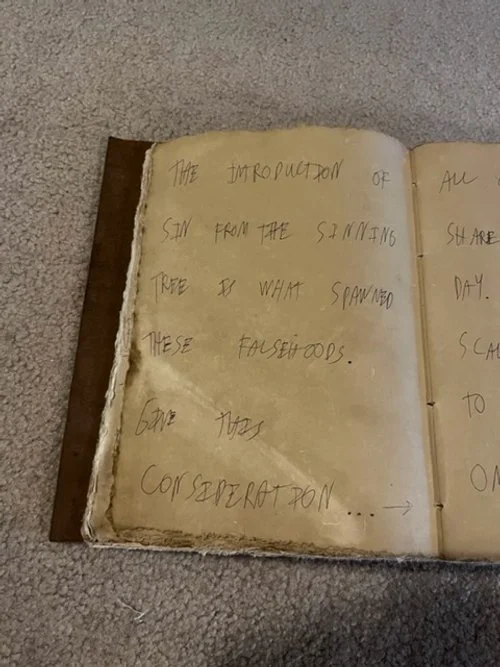 THE INTRODUCTION OF
SIN FROM THE SINNING
TREE IS WHAT SPAWNED
THESE FALSEHOODS.
GIVE THIS
CONSIDERATION... →
ALL
SHARE
DAY.
TO